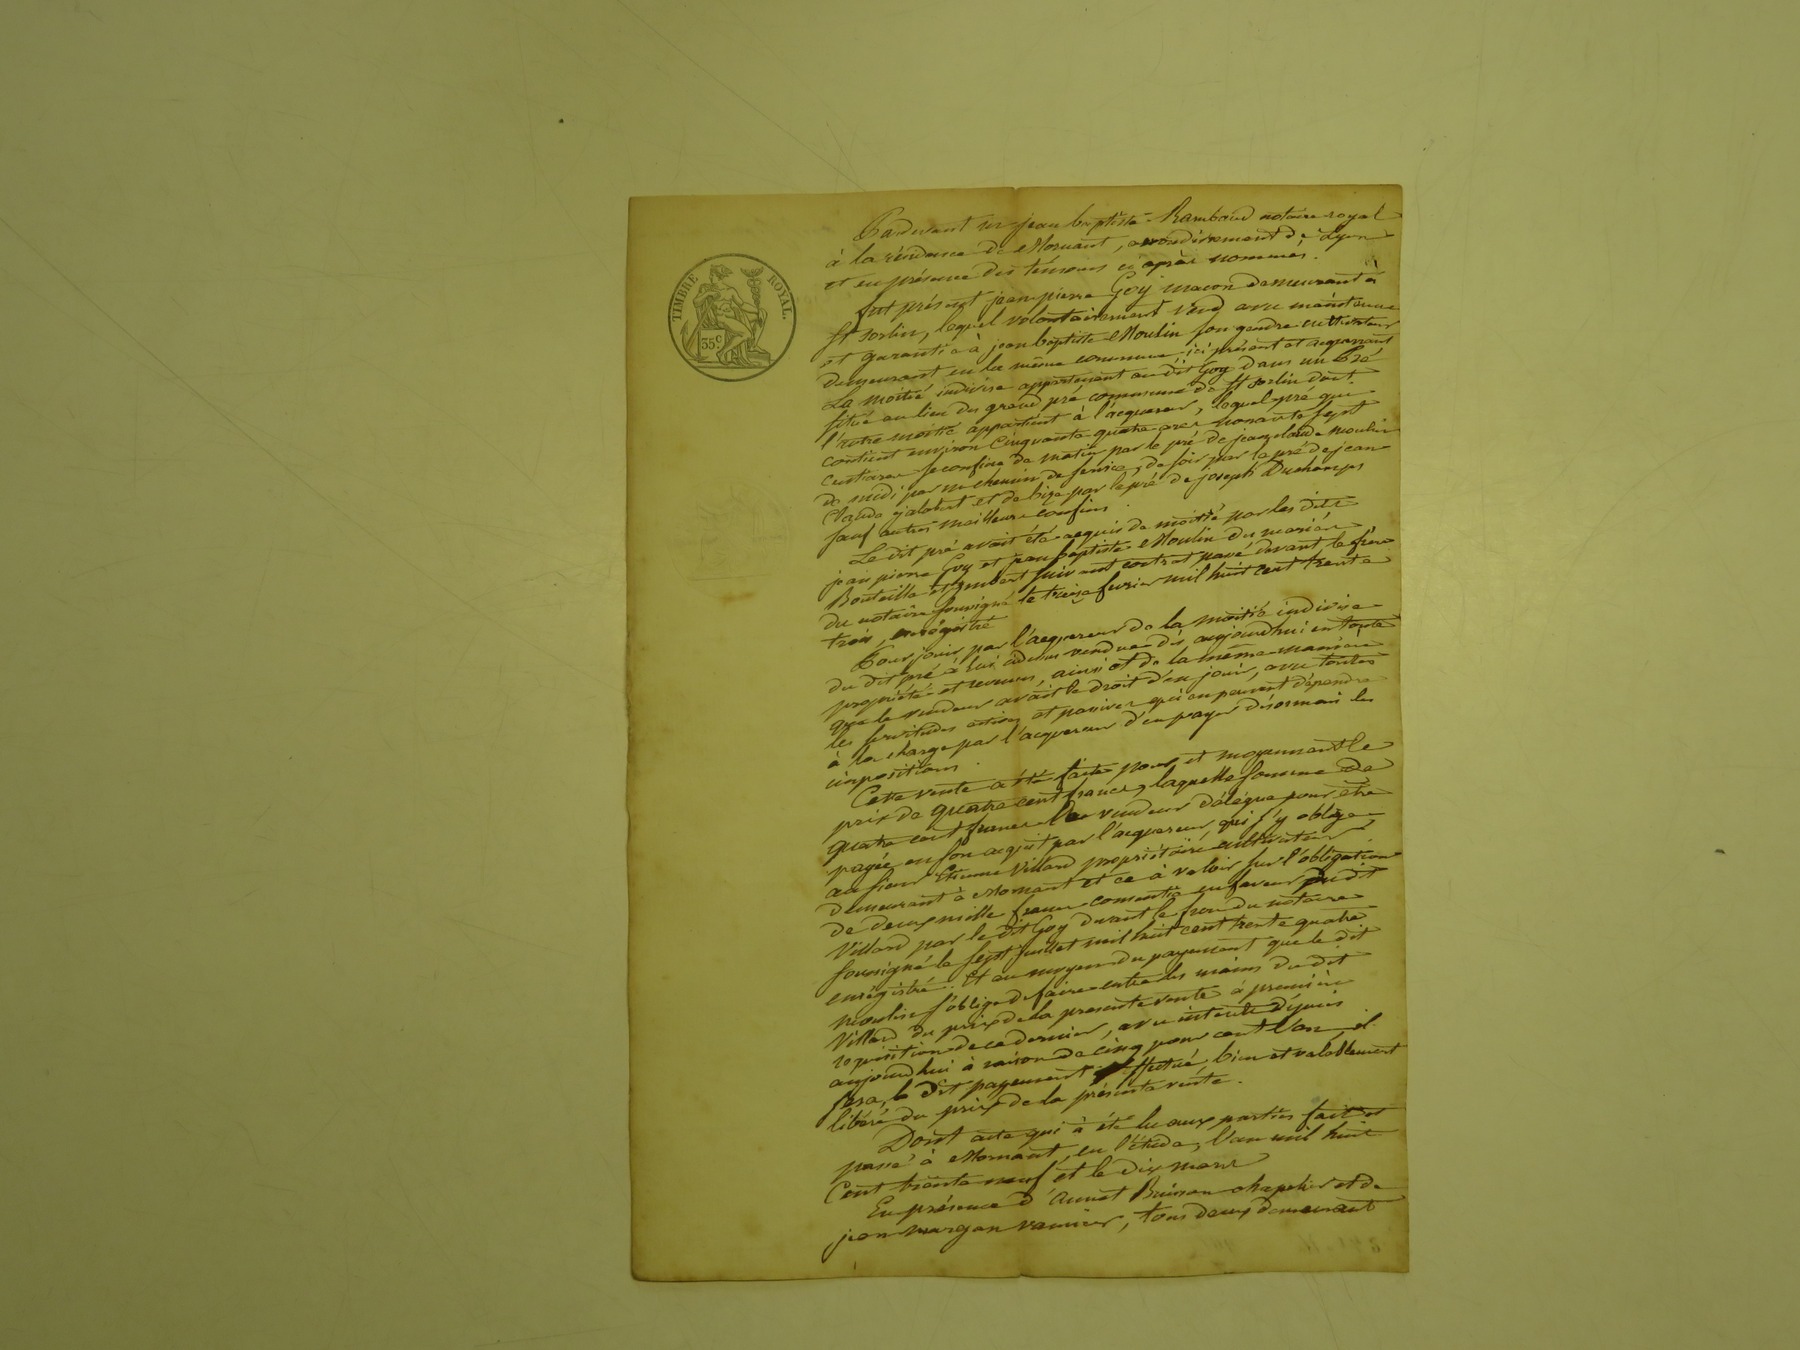 TIMBRE ROYAL.
35c
Pardevant me jean baptiste Rambaud notaire royal
à la résidence de Mornant, arrondissement de Lyon
et en présence des témoins ci après nommés.
fut présent jean pierre Goy maçon demeurant à
St Sorlin, lequel volontairement vend avec maintenue
et garantie à jean baptiste Moulin son gendre cultivateur
demeurant en la même commune, ici présent et acquerrant
La moitié indivise appartenant au dit Goy dans un Pré
situé au lieu du grand pré commune de St Sorlin dont
l'autre moitié appartient à l'acquereur, lequel pré qui
contient environ cinquante quatre ares nonante sept
centiares se confine de matin par le pré de jean claude Moulin
de midi par un chemin de service, de soir par le pré de jean
Claude jalabert et de bize par le pré de joseph Duchamps
sauf autres meilleurs confins.
Le dit pré avait été acquis de moitié par les dits
jean pierre Goy et jean baptiste Moulin du
Bouteille et suivant contrat passé devant le frère
du notaire soussigné le treize fevrier mil huit cent trente
trois, enrégistré
Pour jouir par l'acquereur de la moitié indivise
du dit pré à lui cidessus vendue dès aujourd'hui en toute
propriété et revenus, ainsi et de la même manière
que le vendeur avait le droit d'en jouir, avec toutes
les servitudes actives et passives qui en peuvent dépendre
à la charge par l'acquereur d'en payer désormais les
impositions.
Cette vente a été faite pour et moyennant le
prix de quatre cent francs, laquelle somme de
quatre cent francs le vendeur délègue pour être
payée en son acquit par l'acquereur, qui s'y oblige
au sieur Etienne Villard propriétaire cultivateur
demeurant à Mornant et ce à valoir sur l'obligation
de deux mille francs consentie en faveur du dit
Villard par le dit Goy devant le frère du notaire
soussigné le sept juillet mil huit cent trente quatre
enrégistré. Et au moyen du payement que le dit
Moulin s'oblige de faire entre les mains du dit
Villard du prix de la presente vente à première
réquisition de ce dernier, avec intérêts depuis
aujourd'hui à raison de cinq pour cent l'an, il
sera, le dit payement effectué, bien et valablement
libéré du prix de la présente vente.
Dont acte qui à été lu aux parties fait et
passé à Mornant, en l'étude, l'an mil huit
Cent trente neuf et le dix mars
En présence d'annet Buisson chapelier et de
jean margan vannier, tous deux demeurant